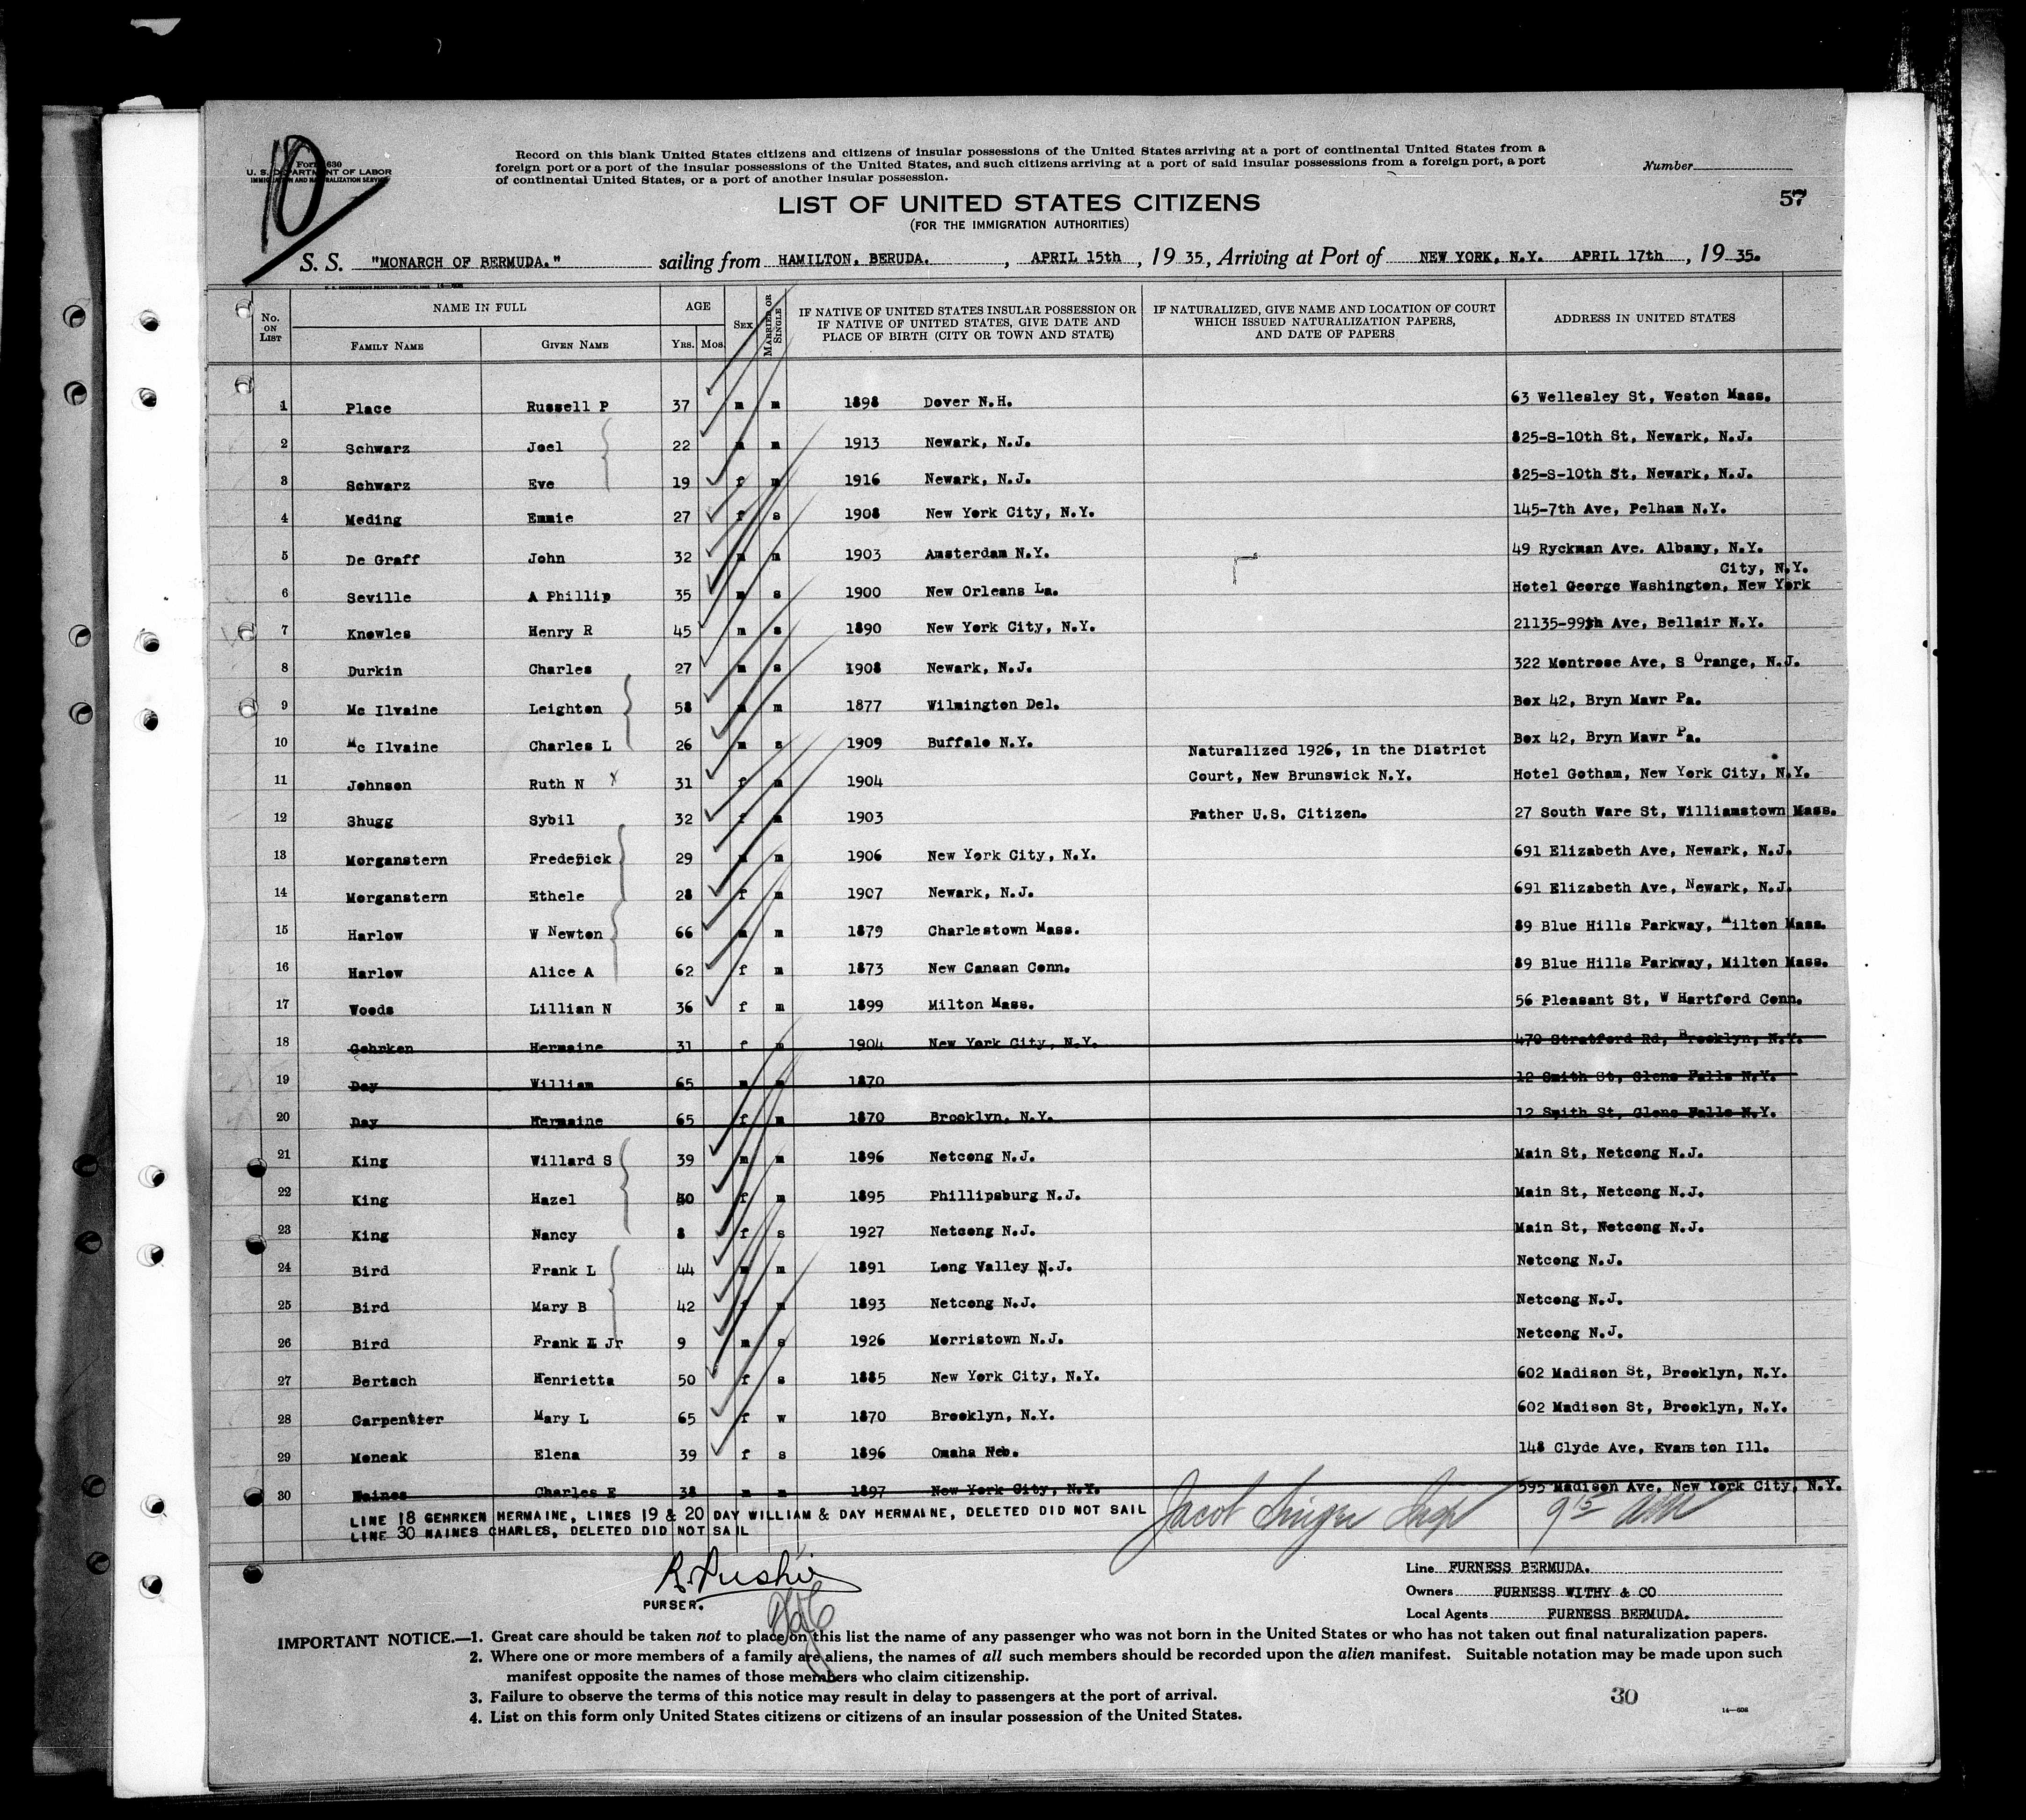 10
Form 630
U. S. DEPARTMENT OF LABOR
IMMIGRATION AND NATURALIZATION SERVICE
Record on this blank United States citizens and citizens of insular possessions of the United States arriving at a port of continental United States from a
foreign port or a port of the insular possessions of the United States, and such citizens arriving at a port of said insular possessions from a foreign port, a port
of continental United States, or a port of another insular possession.
Number
57
LIST OF UNITED STATES CITIZENS
(FOR THE IMMIGRATION AUTHORITIES)
S. S. "MONARCH OF BERMUDA." sailing from HAMILTON, BERUDA. , APRIL 15th , 19 35, Arriving at Port of NEW YORK, N.Y. APRIL 17th , 19 35.
No. ON LIST NAME IN FULL AGE SEX MARRIED OR SINGLE IF NATIVE OF UNITED STATES INSULAR POSSESSION OR IF NATIVE OF UNITED STATES, GIVE DATE AND PLACE OF BIRTH (CITY OR TOWN AND STATE) IF NATURALIZED, GIVE NAME AND LOCATION OF COURT WHICH ISSUED NATURALIZATION PAPERS, AND DATE OF PAPERS ADDRESS IN UNITED STATES
FAMILY NAME GIVEN NAME YRS. MOS.
1 Place Russell P 37 m m 1898 Dover N.H. 63 Wellesley St, Weston Mass.
2 Schwarz Joel 22 m m 1913 Newark, N.J. 825-S-10th St, Newark, N.J.
3 Schwarz Eve 19 f m 1916 Newark, N.J. 825-S-10th St, Newark, N.J.
4 Meding Emmie 27 f s 1908 New York City, N.Y. 145-7th Ave, Pelham N.Y.
5 De Graff John 32 m m 1903 Amsterdam N.Y. 49 Ryckman Ave. Albany, N.Y.
City, N.Y.
6 Seville A Phillip 35 m s 1900 New Orleans La. Hotel George Washington, New York
7 Knowles Henry R 45 m s 1890 New York City, N.Y. 21135-99th Ave, Bellair N.Y.
8 Durkin Charles 27 m s 1908 Newark, N.J. 322 Montrose Ave, S Orange, N.J.
9 Mc Ilvaine Leighton 58 m m 1877 Wilmington Del. Box 42, Bryn Mawr Pa.
10 Mc Ilvaine Charles L 26 m s 1909 Buffalo N.Y. Box 42, Bryn Mawr Pa.
Naturalized 1926, in the District
11 Johnson Ruth N X 31 f m 1904 Court, New Brunswick N.Y. Hotel Gotham, New York City, N.Y.
12 Shugg Sybil 32 f m 1903 Father U.S. Citizen. 27 South Ware St, Williamstown Mass.
13 Morganstern Frederick 29 m m 1906 New York City, N.Y. 691 Elizabeth Ave, Newark, N.J.
14 Morganstern Ethele 28 f m 1907 Newark, N.J. 691 Elizabeth Ave, Newark, N.J.
15 Harlow W Newton 66 m m 1879 Charlestown Mass. 89 Blue Hills Parkway, Milton Mass.
16 Harlow Alice A 62 f m 1873 New Canaan Conn. 89 Blue Hills Parkway, Milton Mass.
17 Woods Lillian N 36 f m 1899 Milton Mass. 56 Pleasant St, W Hartford Conn.
18 Gehrken Hermaine 31 f m 1904 New York City, N.Y. 470 Stratford Rd, Brooklyn, N.Y.
19 Day William 65 m m 1870 12 Smith St, Glens Falls N.Y.
20 Day Hermaine 65 f m 1870 Brooklyn, N.Y. 12 Smith St, Glens Falls N.Y.
21 King Willard S 39 m m 1896 Netcong N.J. Main St, Netcong N.J.
22 King Hazel 40 f m 1895 Phillipsburg N.J. Main St, Netcong N.J.
23 King Nancy 8 f s 1927 Netcong N.J. Main St, Netcong N.J.
24 Bird Frank L 44 m m 1891 Long Valley N.J. Netcong N.J.
25 Bird Mary B 42 f m 1893 Netcong N.J. Netcong N.J.
26 Bird Frank L Jr 9 m s 1926 Morristown N.J. Netcong N.J.
27 Bertsch Henrietta 50 f s 1885 New York City, N.Y. 602 Madison St, Brooklyn, N.Y.
28 Carpentier Mary L 65 f w 1870 Brooklyn, N.Y. 602 Madison St, Brooklyn, N.Y.
29 Moneak Elena 39 f s 1896 Omaha Neb. 148 Clyde Ave, Evanston Ill.
30 Haines Charles E 38 m m 1897 New York City, N.Y. 595 Madison Ave, New York City, N.Y.
LINE 18 GEHRKEN HERMAINE, LINES 19 & 20 DAY WILLIAM & DAY HERMAINE, DELETED DID NOT SAIL
LINE 30 HAINES CHARLES, DELETED DID NOT SAIL
Jacob Insp 9 15 AM
PURSER.
Line FURNESS BERMUDA.
Owners FURNESS WITHY & CO
Local Agents FURNESS BERMUDA.
IMPORTANT NOTICE.—1. Great care should be taken not to place on this list the name of any passenger who was not born in the United States or who has not taken out final naturalization papers.
2. Where one or more members of a family are aliens, the names of all such members should be recorded upon the alien manifest. Suitable notation may be made upon such
manifest opposite the names of those members who claim citizenship.
3. Failure to observe the terms of this notice may result in delay to passengers at the port of arrival.
4. List on this form only United States citizens or citizens of an insular possession of the United States.
30
14—608